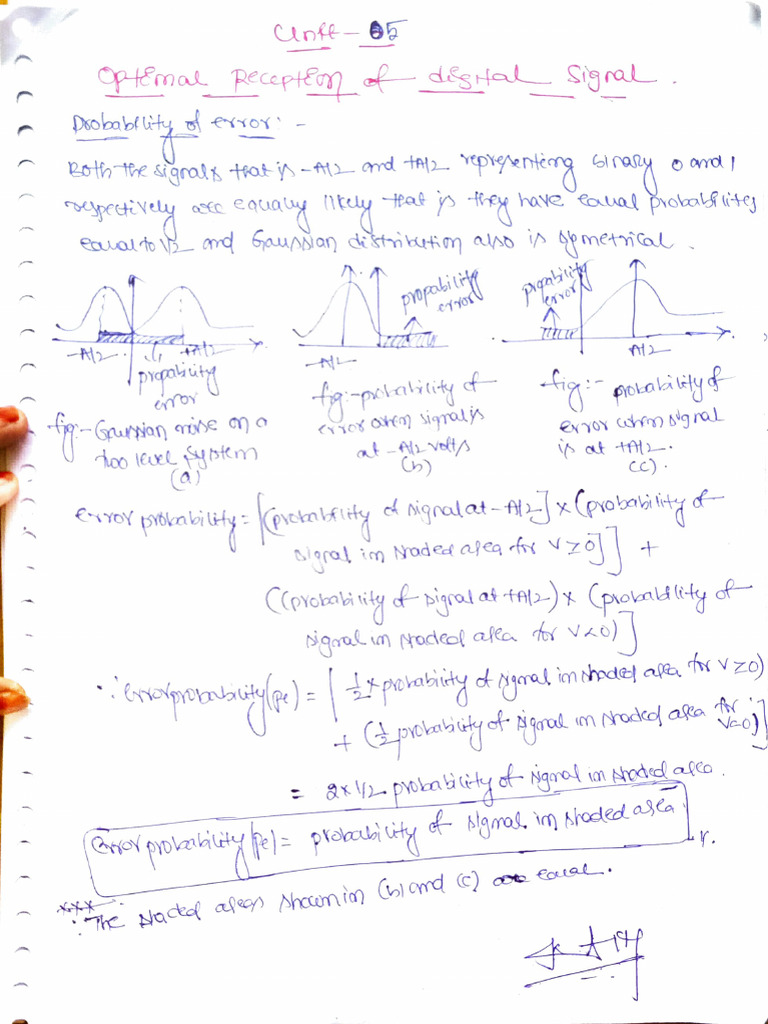 Unit - 05
Optimal Reception of digital Signal.
Probability of error: -
Both the signals that is -A/2 and +A/2 representing binary 0 and 1
respectively are equally likely that is they have equal probabilites
equal to 1/2 and Gaussian distribution also is symetrical.
-A/2 +A/2
propability
error
fig:- Gaussian noise on a
two level system
(a)
propability
error
-A/2
fig:- probability of
error when signal is
at -A/2 volts
(b)
propability
error
A/2
fig:- probability of
error when signal
is at +A/2.
(c).
error probability = [(probability of signal at -A/2] × (probability of
signal in shaded area for V≥0]] +
((probability of signal at +A/2) × (probability of
signal in shaded area for V<0)]
∴ error probability (Pe) = [ 1/2 × probability of signal in shaded area for V≥0)
+ (1/2 probability of signal in shaded area for V<0)]
= 2×1/2 probability of signal in shaded area.
Error probability (Pe) = probability of signal in shaded area.
*** ∴ The shaded areas shown in (b) and (c) are equal.